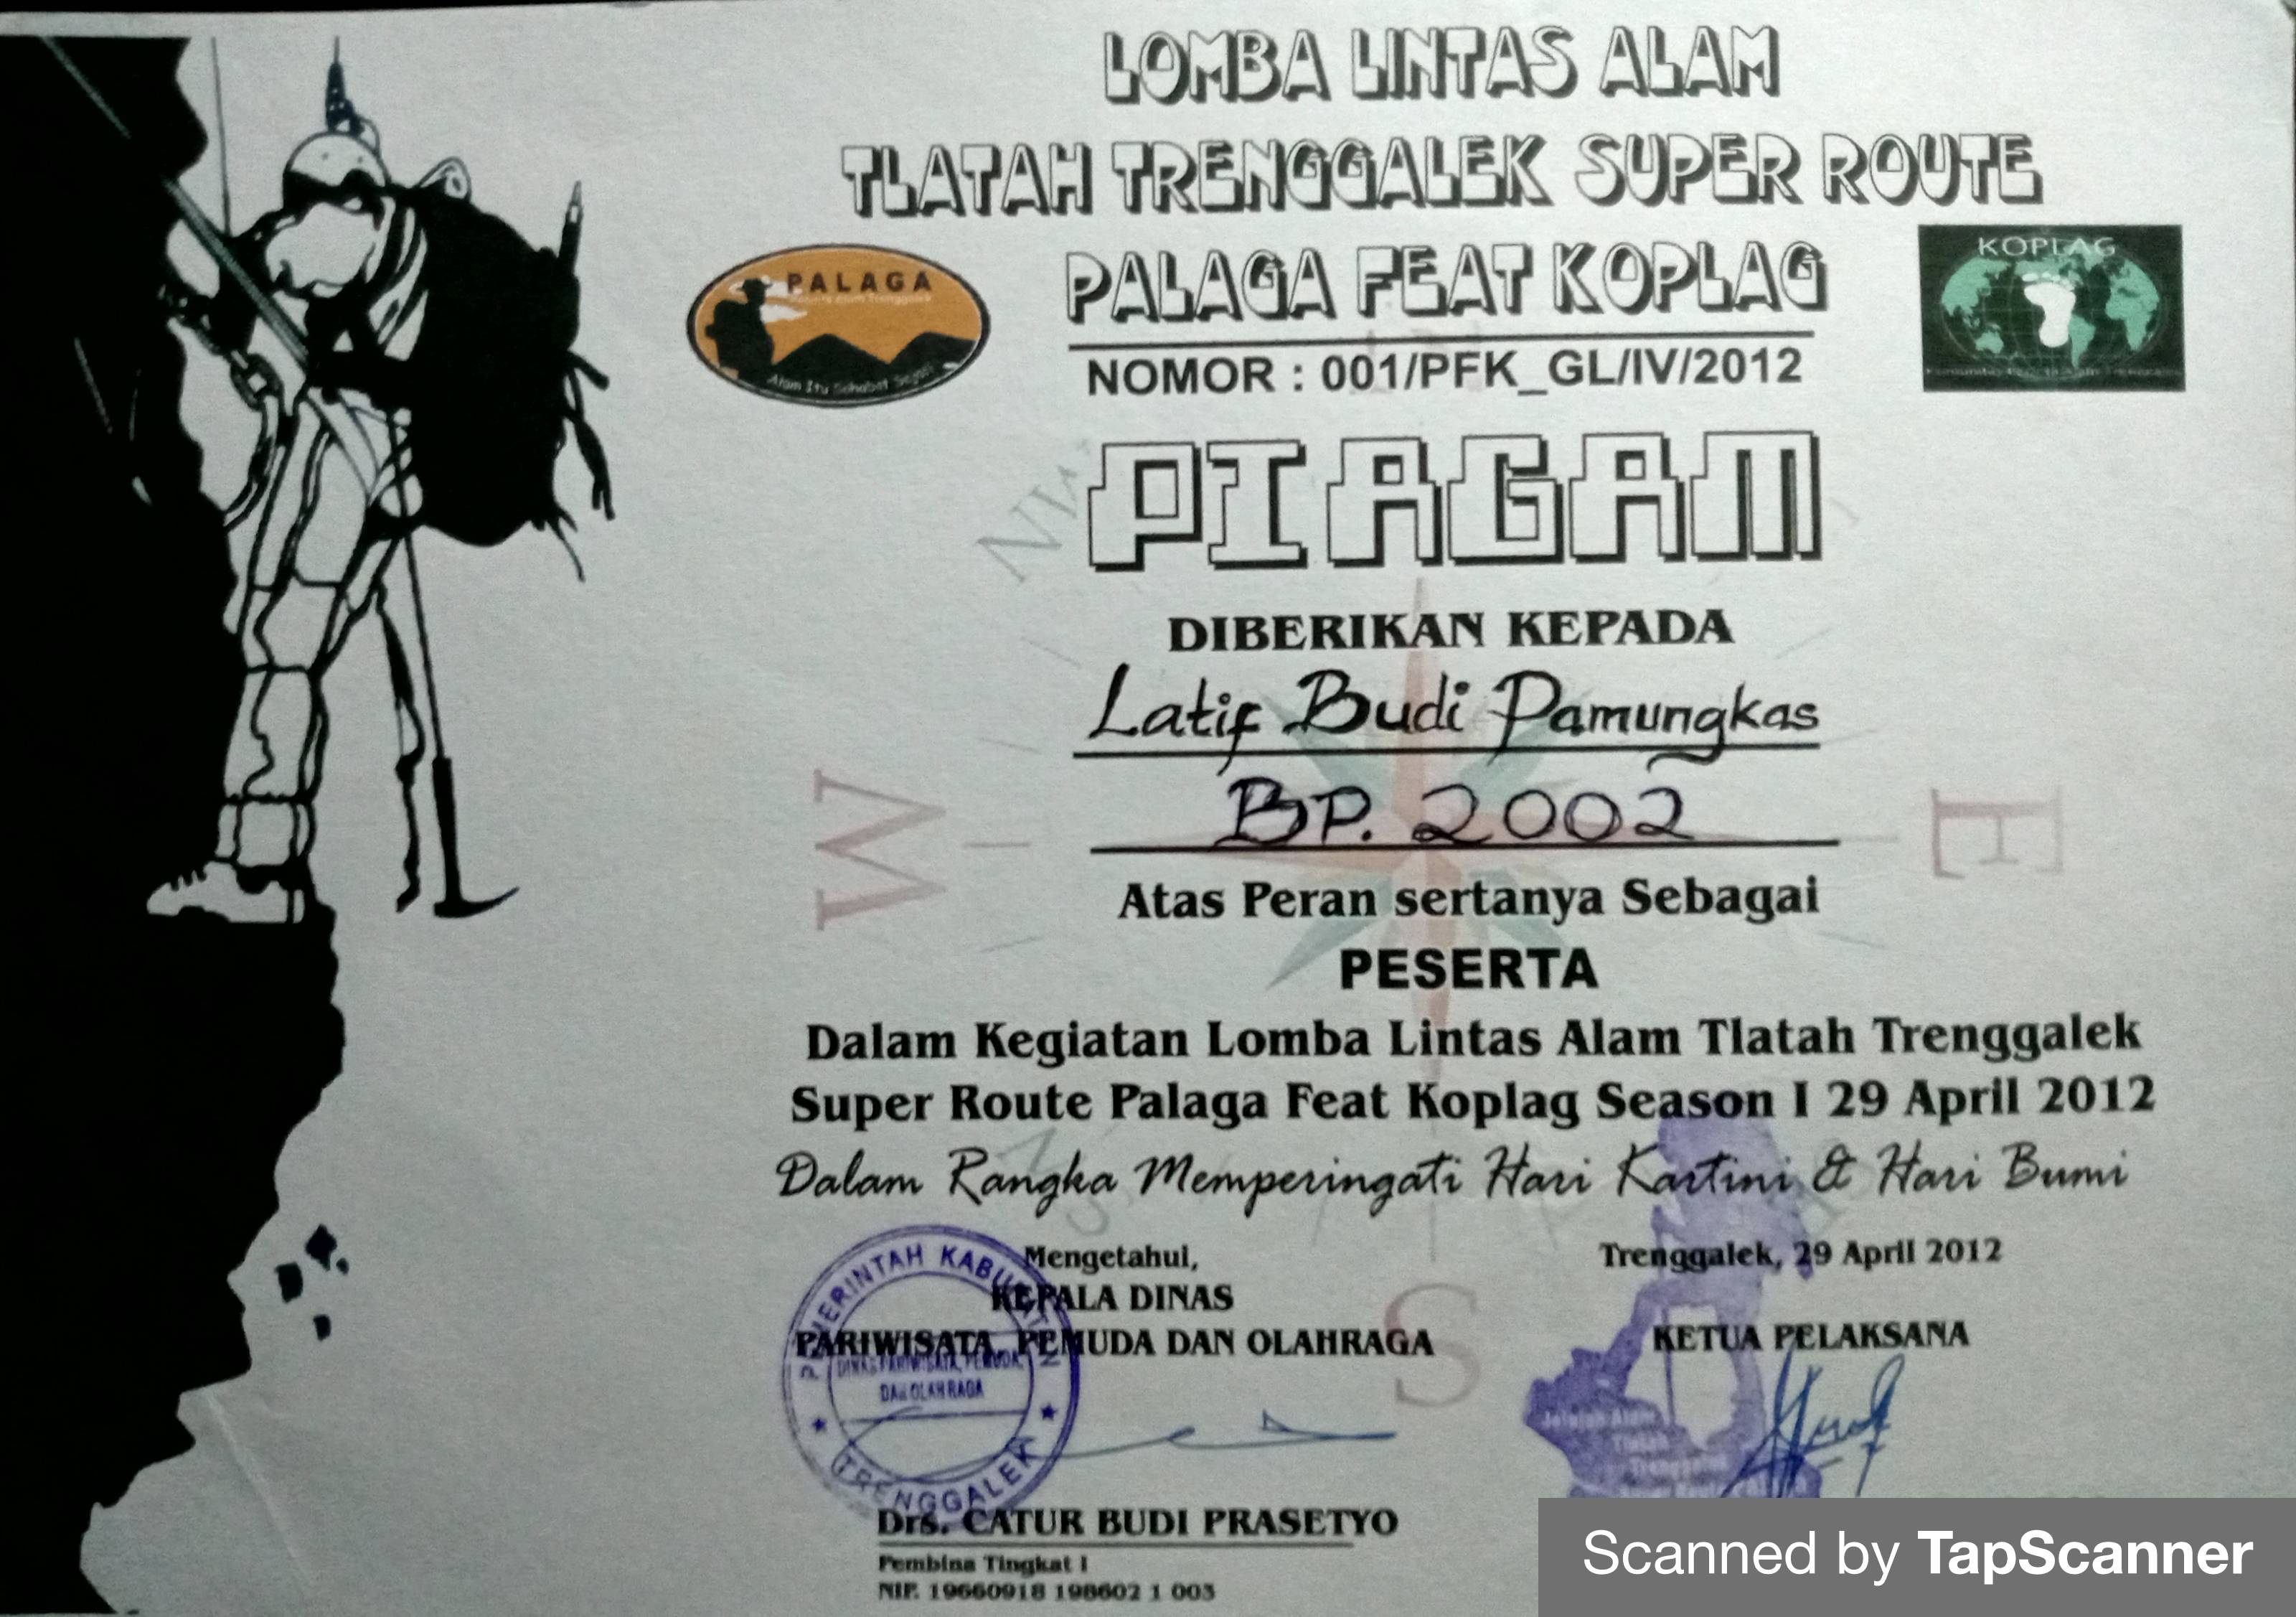 LOMBA LINTAS ALAM
TLATAH TRENGGALEK SUPER ROUTE
PALAGA FEAT KOPLAG
PALAGA
Alam Itu Sahabat Sejati
KOPLAG
NOMOR : 001/PFK_GL/IV/2012
PIAGAM
DIBERIKAN KEPADA
Latif Budi Pamungkas
BP. 2002
W
E
Atas Peran sertanya Sebagai
PESERTA
Dalam Kegiatan Lomba Lintas Alam Tlatah Trenggalek
Super Route Palaga Feat Koplag Season I 29 April 2012
Dalam Rangka Memperingati Hari Kartini & Hari Bumi
Mengetahui,
KEPALA DINAS
PARIWISATA, PEMUDA DAN OLAHRAGA
PEMERINTAH KABUPATEN
DINAS PARIWISATA, PEMUDA
DAN OLAH RAGA
TRENGGALEK
S
Drs. CATUR BUDI PRASETYO
Pembina Tingkat I
NIP. 19660918 198602 1 003
Trenggalek, 29 April 2012
KETUA PELAKSANA
Jelajah Alam
Tlatah
Trenggalek
Scanned by TapScanner